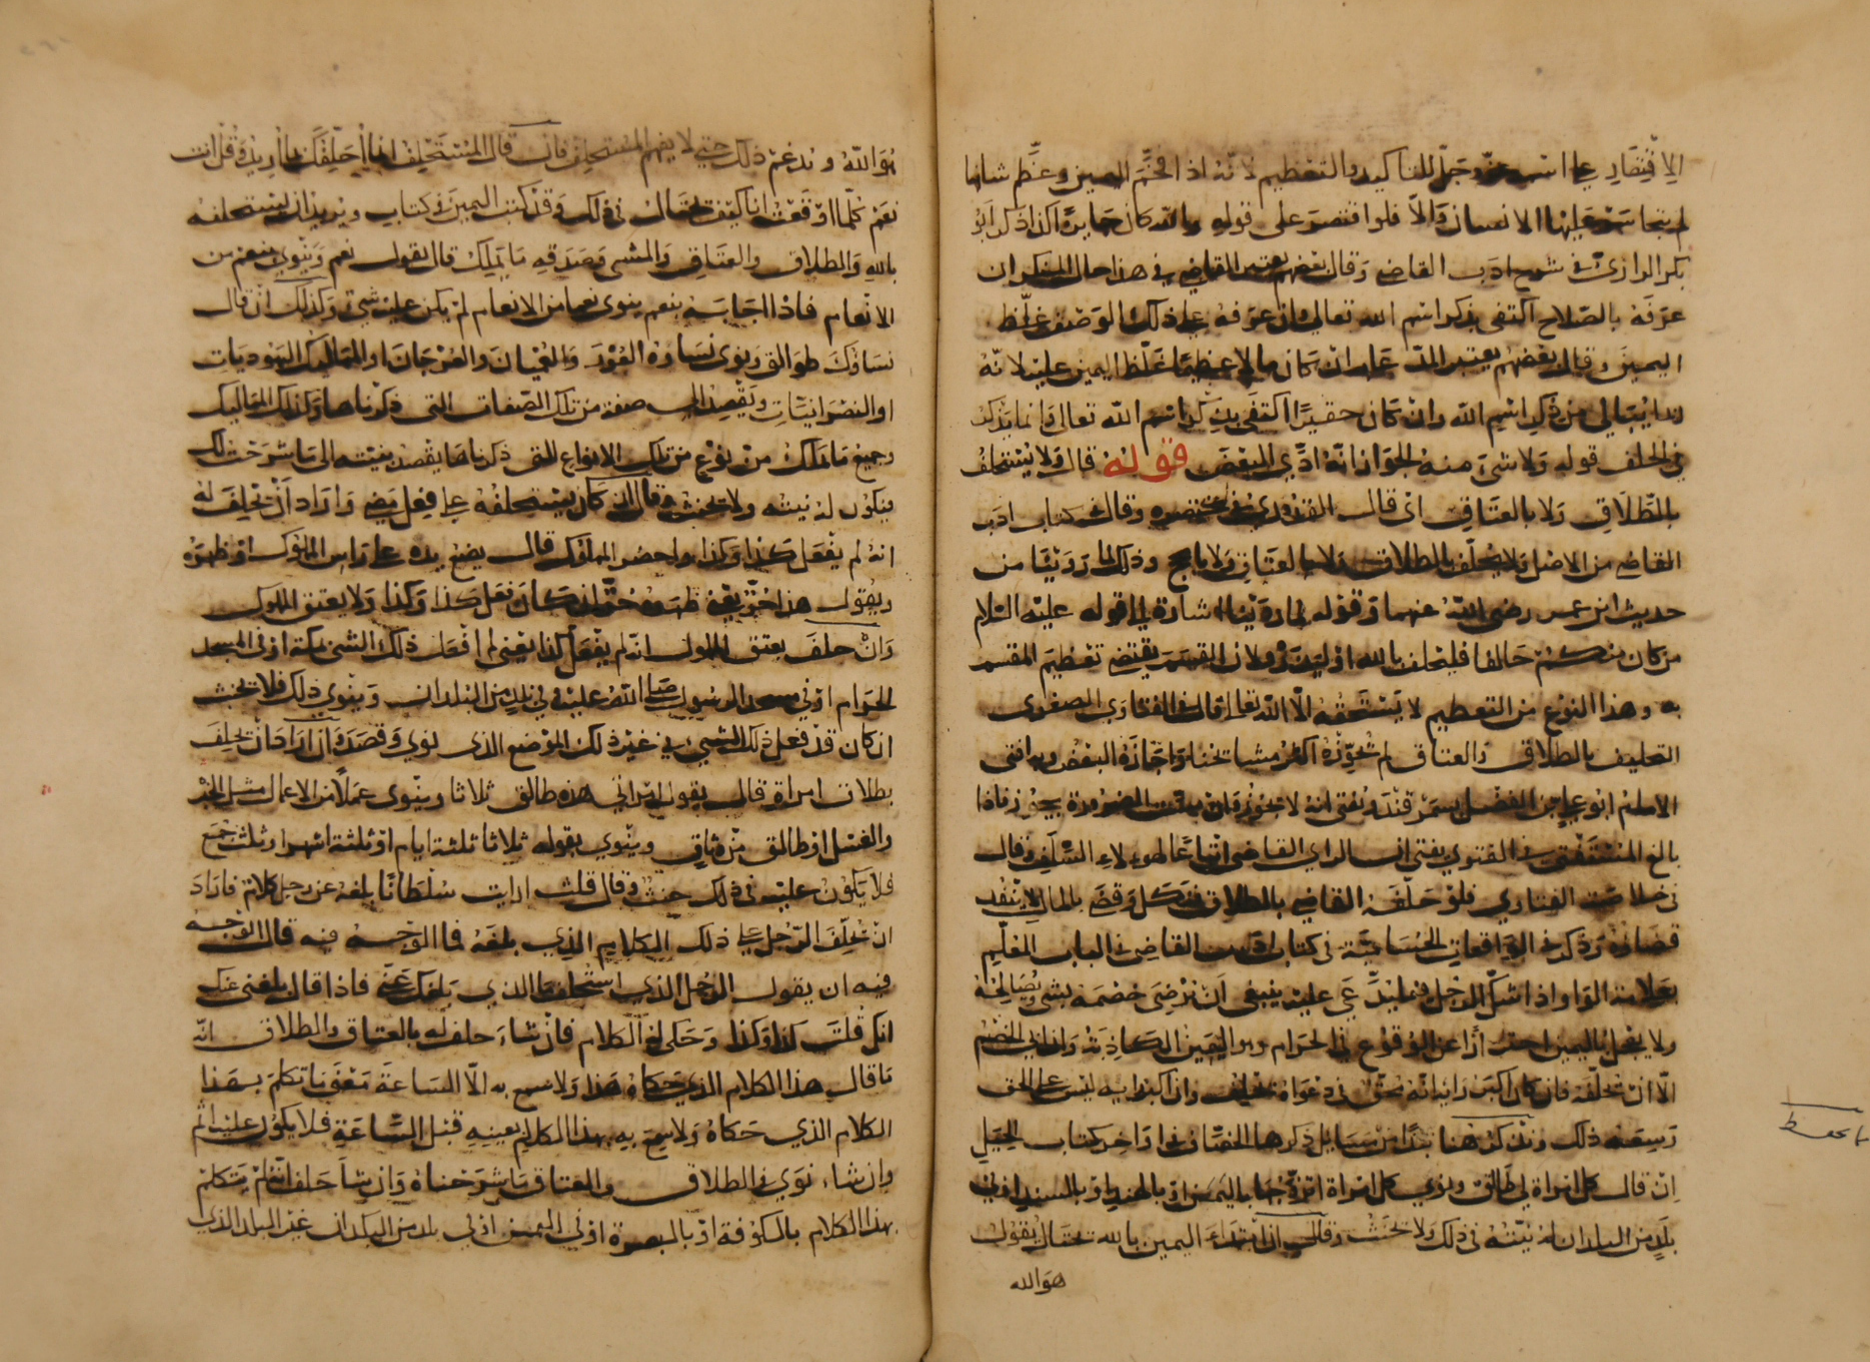 الاقتصار على اسم الله عز وجل للتاكيد والتعظيم لانه اذا فخم اليمين وعظم شانها
لم يتجاسر عليها الانسان والا فلو اقتصر على قوله والله كان جايزا كذا ذكر ابو
بكر الرازي في شرح ادب القاضي وقال بعضهم يعتبر القاضي في هذا حال المنكر ان
عرفه بالصلاح اكتفى بذكر اسم الله تعالى وان عرفه على ذلك الوصف غلظ
اليمين وقال بعضهم يعتبر المدعا به ان كان مالا عظيما غلظ اليمين عليه لانه
يبالي من ذكر اسم الله وان كان حقيرا اكتفى بذكر اسم الله تعالى وانما يذكر
في الحلف قوله ولا شيء منه لجواز انه ادى البعض قوله قال ولا يستحلف
بالطلاق ولا بالعتاق اي قال القدوري في مختصره وقال في كتاب ادب
القاضي من الاصل ولا يحلف بالطلاق ولا بالعتاق ولا بالحج وذلك لما روينا من
حديث ابن عمر رضي الله عنهما وقوله لما روينا اشارة الى قوله عليه السلام
من كان منكم حالفا فليحلف بالله او ليذر ولان القسم يقتضي تعظيم المقسم
به وهذا النوع من التعظيم لا يستحقه الا الله تعالى قال في الفتاوى الصغرى
التحليف بالطلاق والعتاق لم يجوزه اكثر مشايخنا واجازه البعض وبه افتى
الامام ابو علي بن الفضل بسمرقند ويفتى انه لا يجوز فان مست الضرورة يجوز فاذا
بالغ المستفتي في الفتوى يفتى ان الراي القاضي اتباعا لهولاء السلف وقال
في خلاصة الفتاوى فلو حلفه القاضي بالطلاق فنكل وقضى بالمال لا ينفذ
قضاوه وذكر في الواقعات الحسامية في كتاب ادب القاضي في الباب المعلم
بعلامة الواو اذا شك الرجل فيما يدعي عليه ينبغي ان يرضي خصمه بشيء ويصالحه
ولا يعجل باليمين احترازا عن الوقوع في الحرام وهو اليمين الكاذبة وان ابى الخصم
الا ان يحلفه فان كان اكبر رايه انه محق في دعواه لا يحلف وان اكبر رايه ليس على الحق
وسعه ذلك ونذكر هنا نبذا من مسايل ذكرها الخصاف في اواخر كتاب الحيل
ان قال كل امراة لي طالق ونوى كل امراة اتزوجها باليمن او بالهند او بالسند او في
بلد من البلدان له نيته في ذلك ولا يحنث وقال ان ابتداء اليمين بالله يحتال يقول
هو الله
هو الله ويدغم ذلك حتى لا يفهم المستحلف فان قال المستحلف انما احلفك بما اريد وقل انت
نعم كلما اوقفت انا كيف يحتال في ذلك وقد كتب اليمين في كتاب ويريد ان يستحلفه
بالله والطلاق والعتاق والمشي وصدقه ما يملك قال يقول نعم وينوي بنعم من
الانعام فاذا اجابه بنعم ينوي نعما من الانعام لم يكن عليه شيء وكذلك ان قال
نساوك طوالق ونوى نساوه العور والعميان والعرجان او المماليك اليهوديات
او النصرانيات ويقصد الى صفة من تلك الصفات التي ذكرناها وكذلك المماليك
وجميع ما ملك من نوع من تلك الانواع التي ذكرناها يقصد بنيته الى ما شرحت لك
فيكون له نيته ولا يحنث وقال ان كان يستحلفه على فعل مضى واراد ان يحلف له
انه لم يفعل كذا وكذا واحضر المملوك قال يضع يده على راس المملوك او ظهره
ويقول هذا حر يعني ظهره حر ان كان فعل كذا وكذا ولا يعتق المملوك
وان حلف بعتق المملوك انه لم يفعل كذا يعني لم افعل ذلك الشيء بمكة او في المسجد
الحرام او في مسجد الرسول صلى الله عليه او في بلد من البلدان وينوي ذلك فلا يحنث
ان كان قد فعل ذلك الشيء في غير ذلك الموضع الذي نوى وقصده وان اراد ان يحلف
بطلاق امراة قال يقول امراتي هذه طالق ثلاثا وينوي عملا من الاعمال مثل الخبز
والغسل او طالق من وثاق وينوي بقوله ثلاثا ثلثة ايام او ثلثة اشهر او ثلث جمع
فلا يكون عليه في ذلك حنث وقال قلت ارايت سلطانا بلغه عن رجل كلام فاراد
ان يحلف الرجل على ذلك الكلام الذي بلغه فما الوجه فيه قال الوجه
فيه ان يقول الرجل الذي استحلفه ما الذي بلغك عني فاذا قال بلغني عنك
انك قلت كذا وكذا وحكى له الكلام فان شاء حلف له بالعتاق والطلاق انه
ما قال هذا الكلام الذي حكاه هذا ولا سمع به الا الساعة تكلم بهذا
الكلام الذي حكاه ولا سمع به بهذا الكلام بعينه قبل الساعة فلا يكون عليه اثم
وان شاء نوى في الطلاق والعتاق ما شرحناه وان شا حلف انه لم يتكلم
بهذا الكلام بالكوفة او بالبصرة او في اليمن او في بلد من البلدان غير البلد الذي